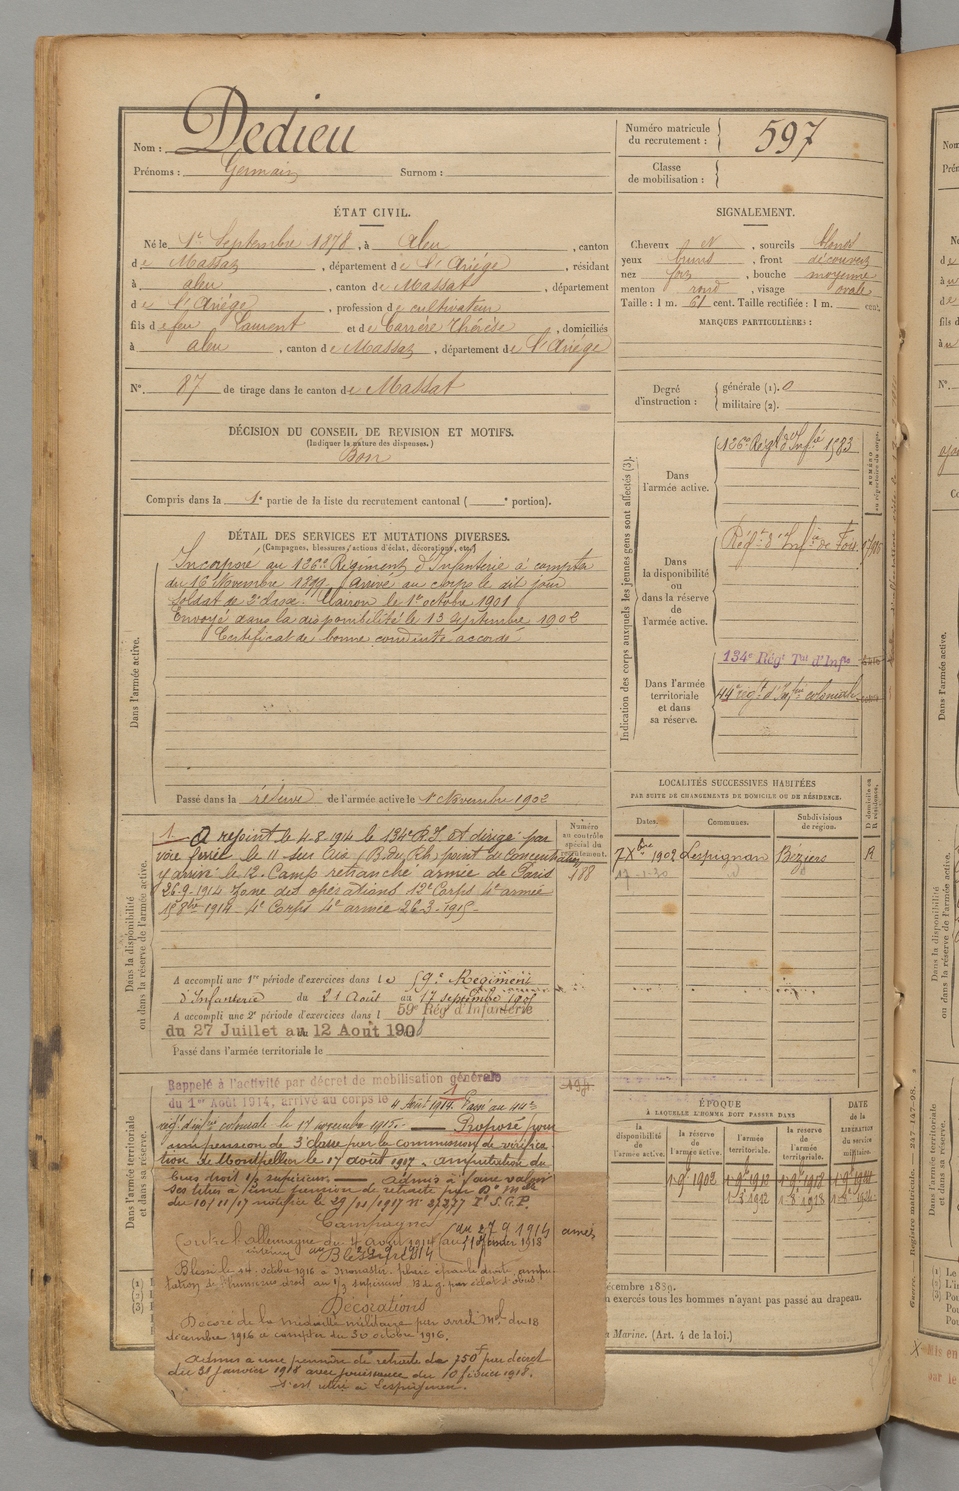 Nom : Dedieu
Prénoms : Germain Surnom :
Numéro matricule du recrutement : 597
Classe de mobilisation :
ÉTAT CIVIL.
Né le 1er Septembre 1878, à Aleu, canton
de Massat, département de l'Ariège, résidant
à aleu, canton de Massat, département
de l'Ariège, profession de cultivateur
fils de feu Laurent et de Carrère Thérèse, domiciliés
à aleu, canton de Massat, département de l'Ariège
N° 87 de tirage dans le canton de Massat
SIGNALEMENT.
Cheveux , sourcils blonds
yeux bruns, front découvert
nez , bouche moyenne
menton rond, visage ovale
Taille : 1 m. 61 cent. Taille rectifiée : 1 m. cent.
MARQUES PARTICULIÈRES :
Degré d'instruction : générale (1). 0
militaire (2).
DÉCISION DU CONSEIL DE REVISION ET MOTIFS.
(Indiquer la nature des dispenses.)
Bon
Compris dans la 1e partie de la liste du recrutement cantonal ( e portion).
DÉTAIL DES SERVICES ET MUTATIONS DIVERSES.
(Campagnes, blessures, actions d'éclat, décorations, etc.)
Dans l'armée active.
Incorporé au 126e Régiment d'Infanterie à compter
du 16 Novembre 1899. Arrivé au corps le dit jour
Soldat de 2e classe. Clairon le 1er octobre 1901
Envoyé dans la disponibilité le 13 septembre 1902
Certificat de bonne conduite accordé
Passé dans la réserve de l'armée active le 1 Novembre 1902
Indication des corps auxquels les jeunes gens sont affectés (3).
NUMÉRO au répertoire du corps.
Dans l'armée active.
126e Régt d'Infie 1583
Dans la disponibilité ou dans la réserve de l'armée active.
Régt d'Infie de Foix
Dans l'armée territoriale et dans sa réserve.
134e Régt Tal d'Infie
44e régt d'Infie coloniale
Dans la disponibilité ou dans la réserve de l'armée active.
Numéro au contrôle spécial du recrutement.
188
1 A rejoint le 4-8-1914 le 134e R.I. et dirigé par
voie ferrée le 11 sur Aix (B. du Rh) point de concentration
y arrive le 12. Camp retranché armée de Paris
26-9-1914 zone des opérations 12e Corps 4e armée
15 8bre 1914 - 4e Corps 4e armée 26-3-1915 -
A accompli une 1re période d'exercices dans le 59e Régiment
d'Infanterie du 21 Août au 17 septembre 1905
A accompli une 2e période d'exercices dans l 59e Rég d'Infanterie
du 27 Juillet au 12 Août 1908
Passé dans l'armée territoriale le
LOCALITÉS SUCCESSIVES HABITÉES
PAR SUITE DE CHANGEMENTS DE DOMICILE OU DE RÉSIDENCE.
Dates. Communes. Subdivisions de région. D domicile ou R résidence.
7 Xbre 1902 Lespignan Béziers R
Dans l'armée territoriale et dans sa réserve.
Rappelé à l'activité par décret de mobilisation générale
du 1er Août 1914, arrivé au corps le 4 Août 1914. Passé au 44e
régt d'infie coloniale le 17 novembre 1915. — Proposé pour
une pension de 3e classe par la commission de vérifica
tion de Montpellier le 17 août 1917. amputation du
bras droit 1/3 supérieur. — Admis à faire valoir
ses titres à une pension de retraite par Don Melle
du 10/11/17 notifiée le 29/11/1917 n° P.S.G.P.
Campagnes
Contre l'allemagne du 4 août 1914 au
intérieur
Blessures
Blessé le octobre 1916 à Monastir. plaie épaule droite ampu
tation de l'humérus droit au 1/3 supérieur. par éclat d'obus
Décorations
Décoré de la médaille militaire par arrêté Mel du 18
décembre 1916 à compter du 30 octobre 1916.
Admis à une pension de retraite de 750f par décret
du 31 janvier 1918 avec jouissance du 10 février 1918.
S'est retiré à Lespignan.
ÉPOQUE
À LAQUELLE L'HOMME DOIT PASSER DANS
la disponibilité de l'armée active. la réserve de l'armée active. l'armée territoriale. la réserve de l'armée territoriale. DATE de la LIBÉRATION du service militaire.
1 9e 1902
écembre 1889.
n exercés tous les hommes n'ayant pas passé au drapeau.
a Marine. (Art. 4 de la loi.)